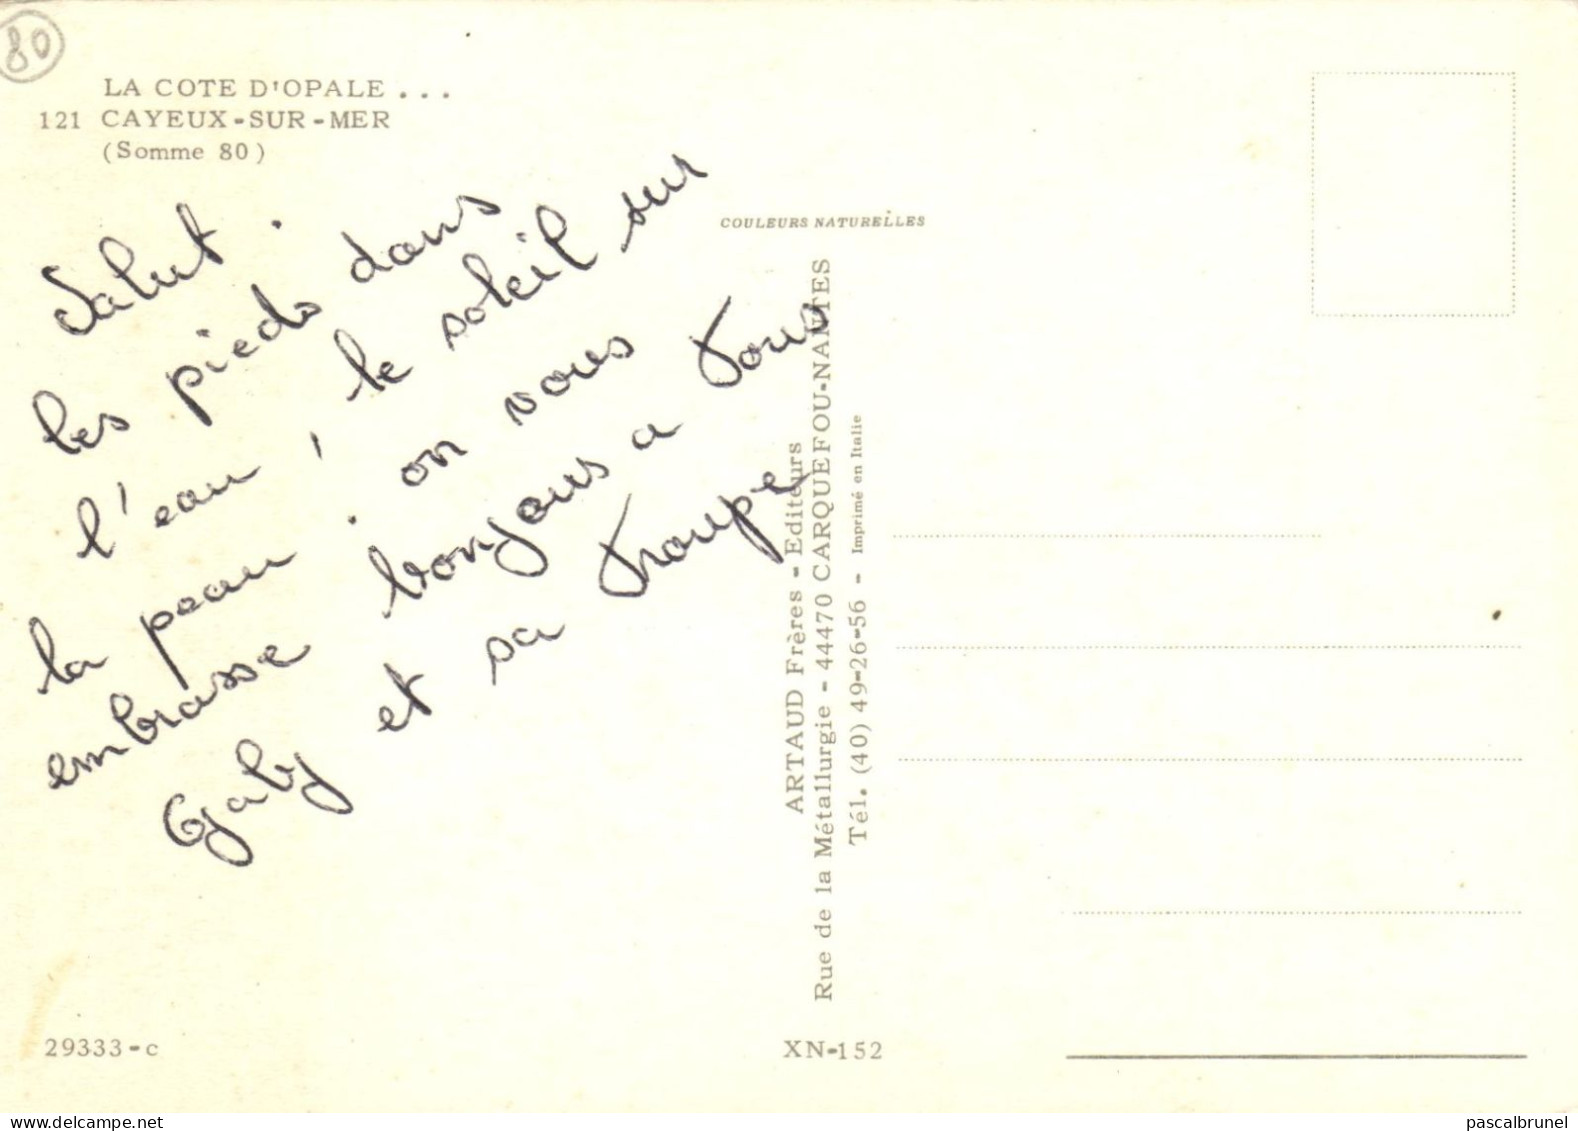 80
LA COTE D'OPALE ...
121 CAYEUX-SUR-MER
(Somme 80)
Salut.
les pieds dans
l'eau, le soleil sur
la peau. on vous
embrasse bonjours a Tous
Gaby et sa Troupe
COULEURS NATURELLES
ARTAUD Frères - Editeurs
Rue de la Métallurgie - 44470 CARQUEFOU-NANTES
Tél. (40) 49-26-56 - Imprimé en Italie
29333-c
XN-152
delcampe.net
pascalbrunel